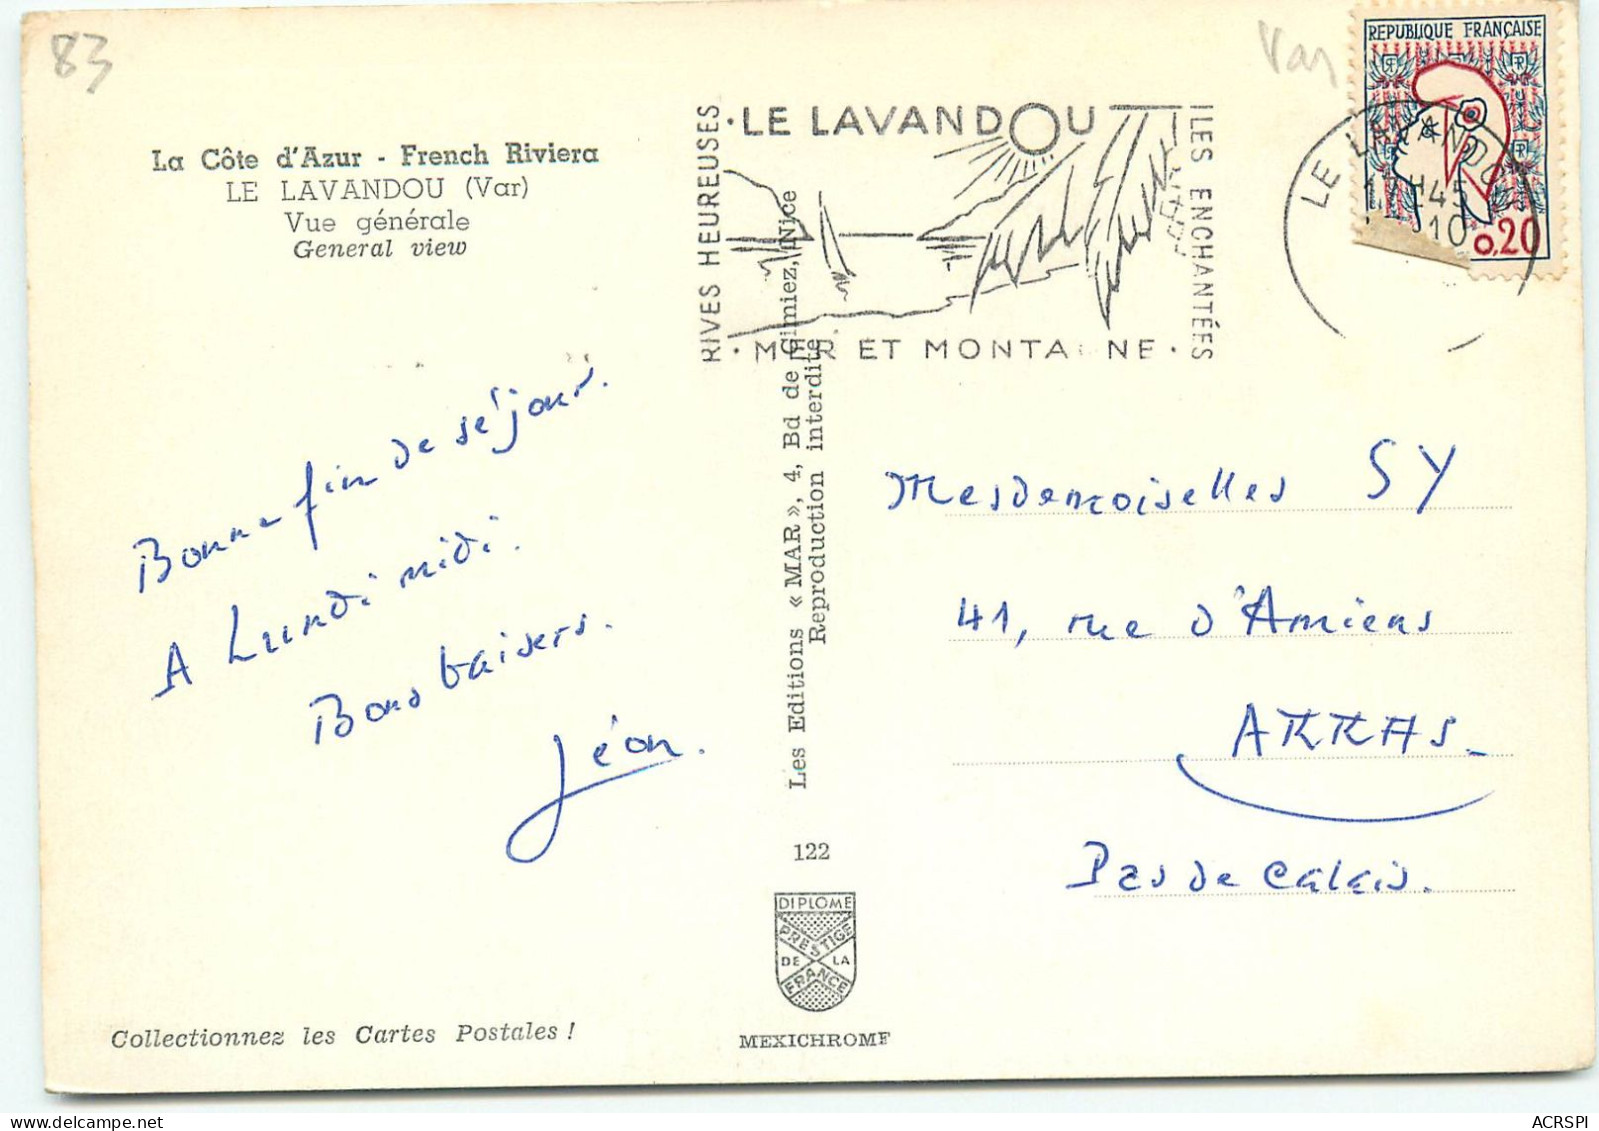 83
Var
REPUBLIQUE FRANÇAISE
0,20
LE LAVANDOU
17H45
10
RIVES HEUREUSES
· LE LAVANDOU
ILES ENCHANTÉES
· MER ET MONTA NE ·
La Côte d'Azur - French Riviera
LE LAVANDOU (Var)
Vue générale
General view
Bonne fin de séjour.
A Lundi midi.
Bons baisers.
Léon.
Les Editions « MAR », 4, Bd de Cimiez, Nice
Reproduction interdite
Mesdemoiselles SY
41, rue d'Amiens
ARRAS_
Pas de Calais.
122
DIPLOME
PRESTIGE
DE LA
FRANCE
MEXICHROME
Collectionnez les Cartes Postales !
ACRSPI